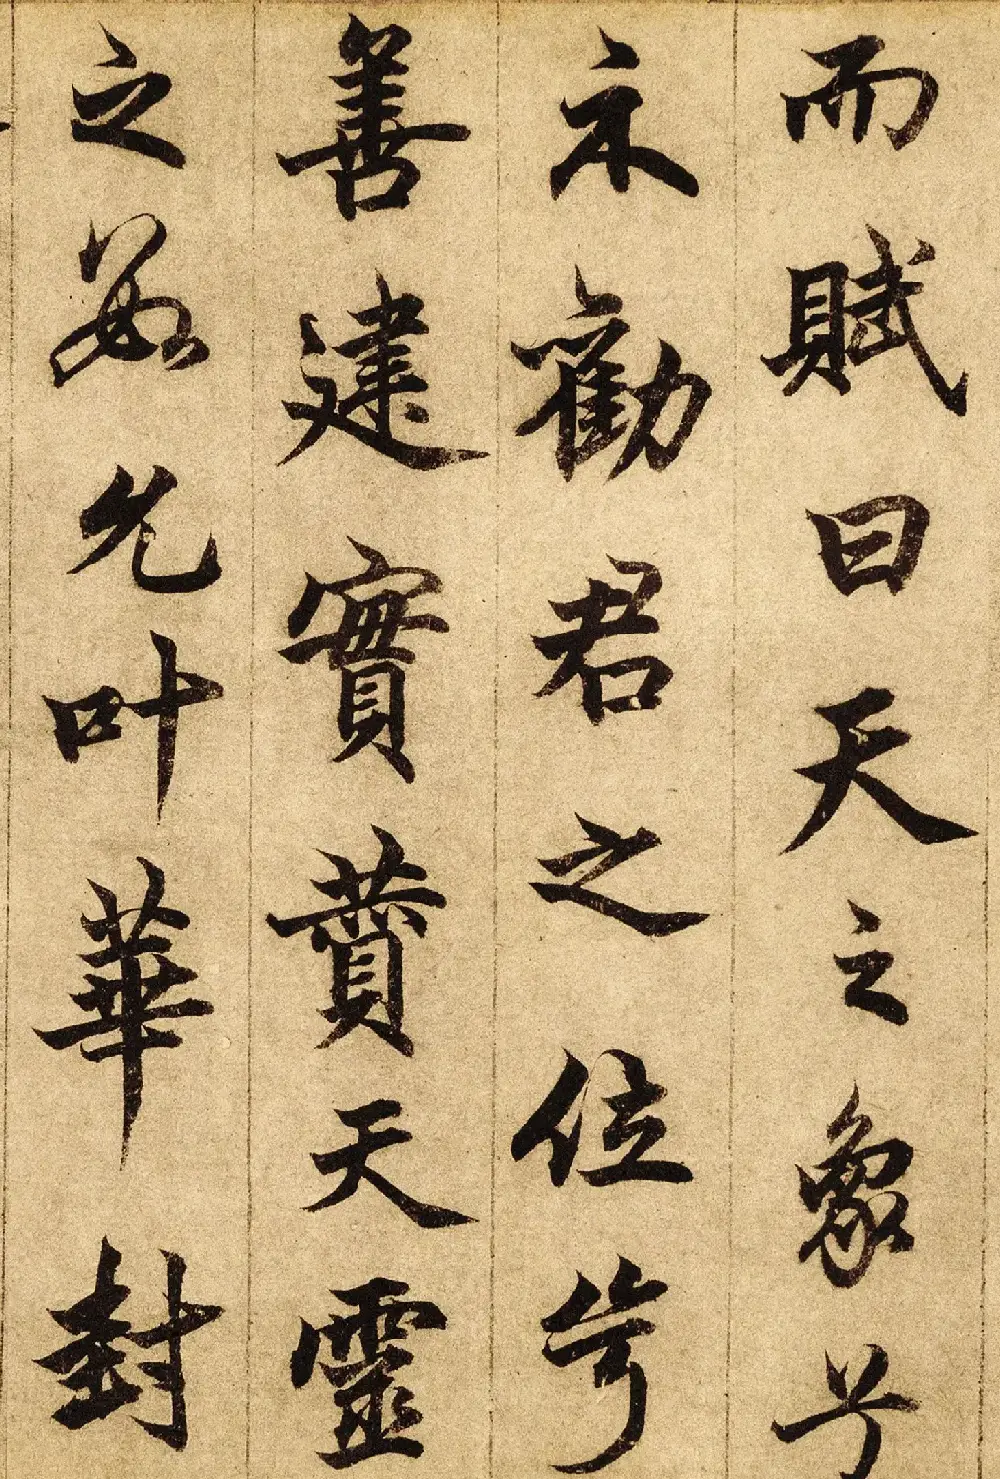 而賦曰天之象兮
示勸君之位兮
善建實賁天靈
之數允叶華封